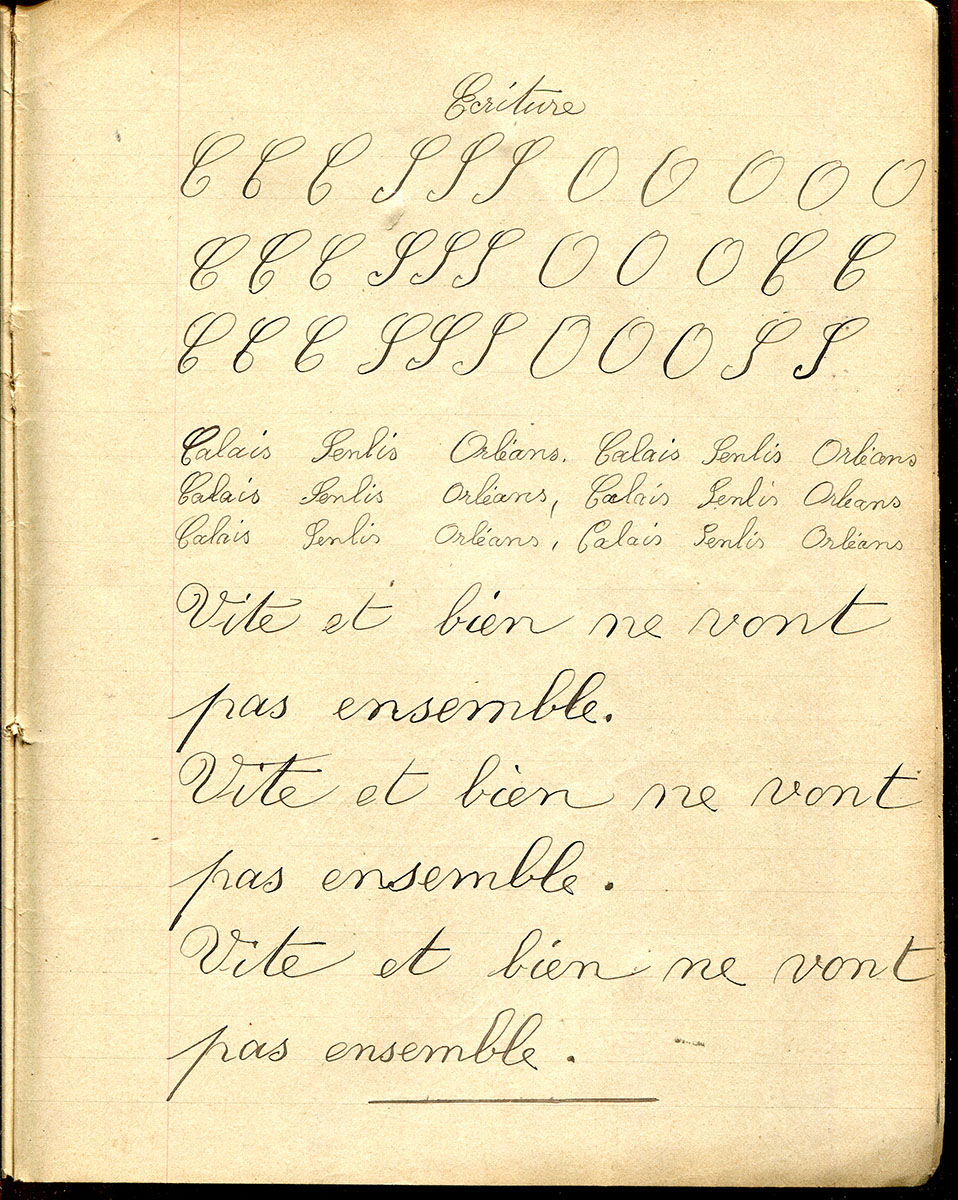 Ecriture
C C C S S S O O O O O
C C C S S S O O O C C
C C C S S S O O O S S
Calais Senlis Orléans. Calais Senlis Orléans
Calais Senlis Orléans, Calais Senlis Orleans
Calais Senlis Orléans, Calais Senlis Orléans
Vite et bien ne vont
pas ensemble.
Vite et bien ne vont
pas ensemble.
Vite et bien ne vont
pas ensemble.